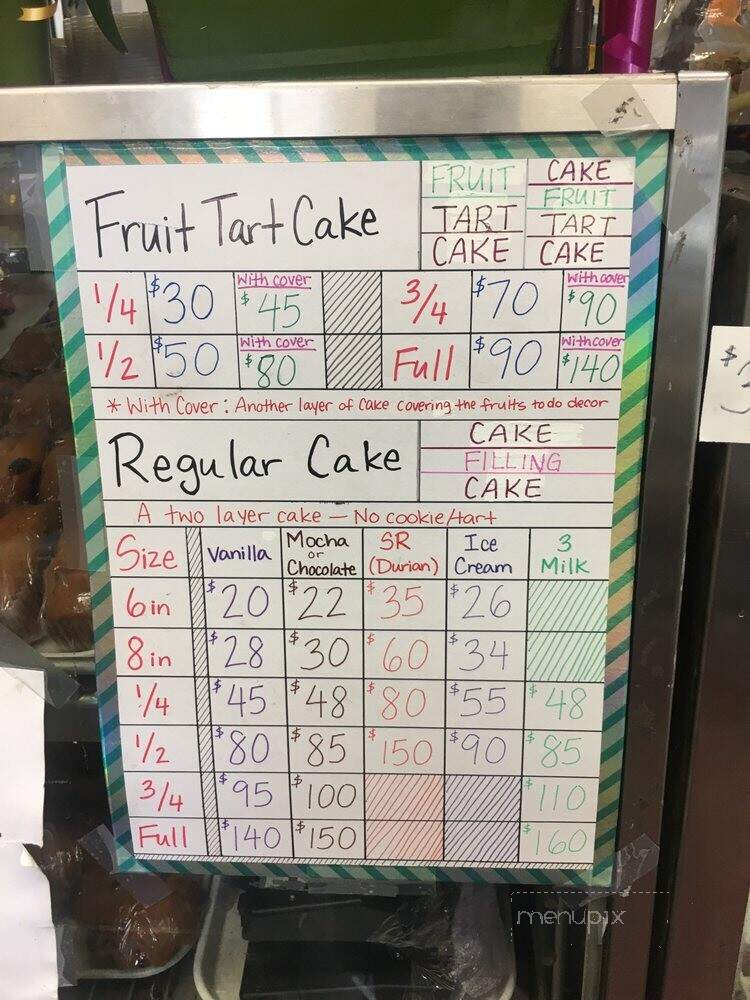 Fruit Tart Cake
FRUIT
TART
CAKE
CAKE
FRUIT
TART
CAKE
1/4 $30 With cover $45 3/4 $70 With cover $90
1/2 $50 With cover $80 Full $90 With cover $140
* With Cover: Another layer of cake covering the fruits to do decor
Regular Cake
CAKE
FILLING
CAKE
A two layer cake — No cookie/tart
Size Vanilla Mocha or Chocolate SR (Durian) Ice Cream 3 Milk
6in $20 $22 $35 $26
8in $28 $30 $60 $34
1/4 $45 $48 $80 $55 $48
1/2 $80 $85 $150 $90 $85
3/4 $95 $100 $110
Full $140 $150 $160
$
menupix